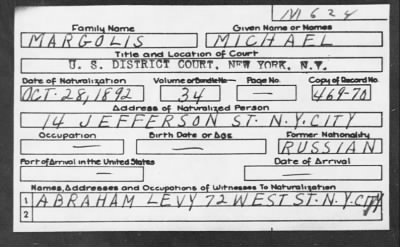 M624
Family Name Given Name or Names
MARGOLIS MICHAEL
Title and Location of Court
U. S. DISTRICT COURT, NEW YORK, N.Y.
Date of Naturalization Volume or Bundle No— Page No— Copy of Record No.
OCT. 28, 1892 34 469-70
Address of Naturalized Person
14 JEFFERSON ST. N.Y. CITY
Occupation Birth Date or Age Former Nationality
RUSSIAN
Port of Arrival in the United States Date of Arrival
Names, Addresses and Occupations of Witnesses To Naturalization
1 ABRAHAM LEVY 72 WEST ST. N.Y. CITY
2